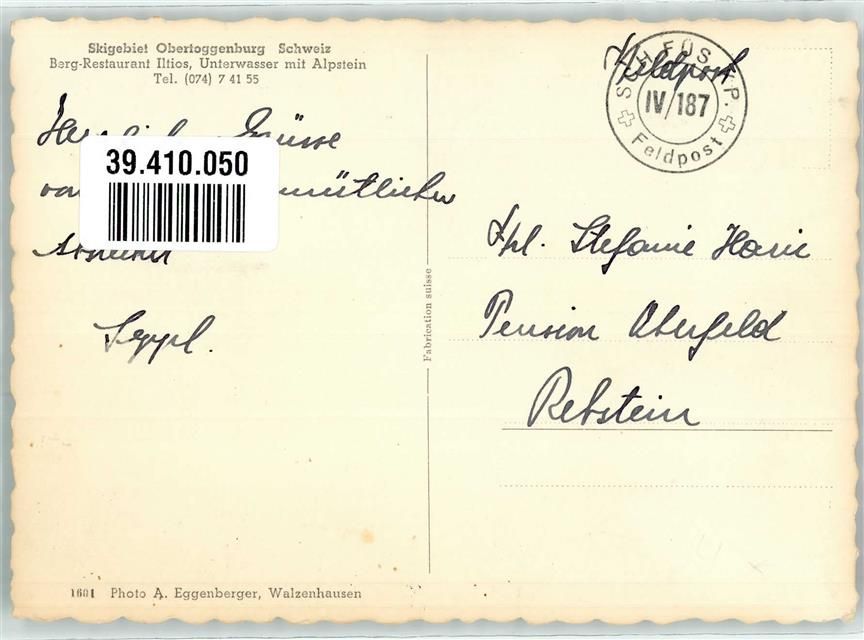 Skigebiet Obertoggenburg Schweiz
Berg-Restaurant Iltios, Unterwasser mit Alpstein
Tel. (074) 7 41 55
Grüsse
39.410.050
Seppl.
Feldpost
SCH. FÜS. KP.
IV/187
Feldpost
Frl. Stefanie
Pension Oberfeld
Rebstein
Fabrication suisse
1601 Photo A. Eggenberger, Walzenhausen